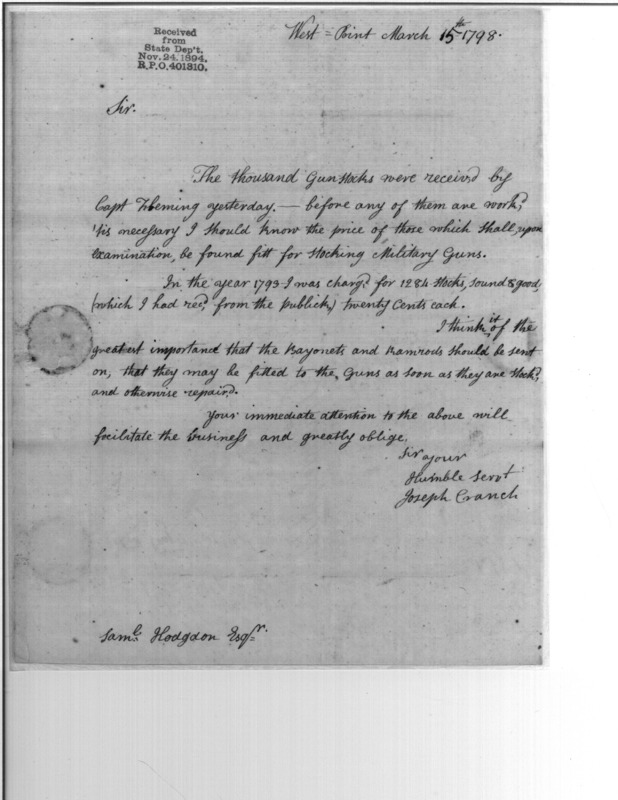 Received
from
State Dep't.
Nov. 24. 1894.
R.P.O. 401310.
West=Point March 15th 1798.
Sir.
The thousand Gunstocks were receiv'd by
Capt Fleming yesterday. — before any of them are work'd,
'tis necessary I should know the price of those which shall, upon
examination, be found fitt for Stocking Military Guns.
In the year 1793 I was charg'd for 1284 Stocks, sound & good,
(which I had rec'd from the publick,) twenty Cents each.
I think it of the
greatest importance that the Bayonets and Ramrods should be sent
on, that they may be fitted to the Guns as soon as they are Stock'd,
and otherwise repair'd.
Your immediate attention to the above will
facilitate the business and greatly oblige,
Sir your
Humble Servt
Joseph Cranch
Saml. Hodgdon Esqr.